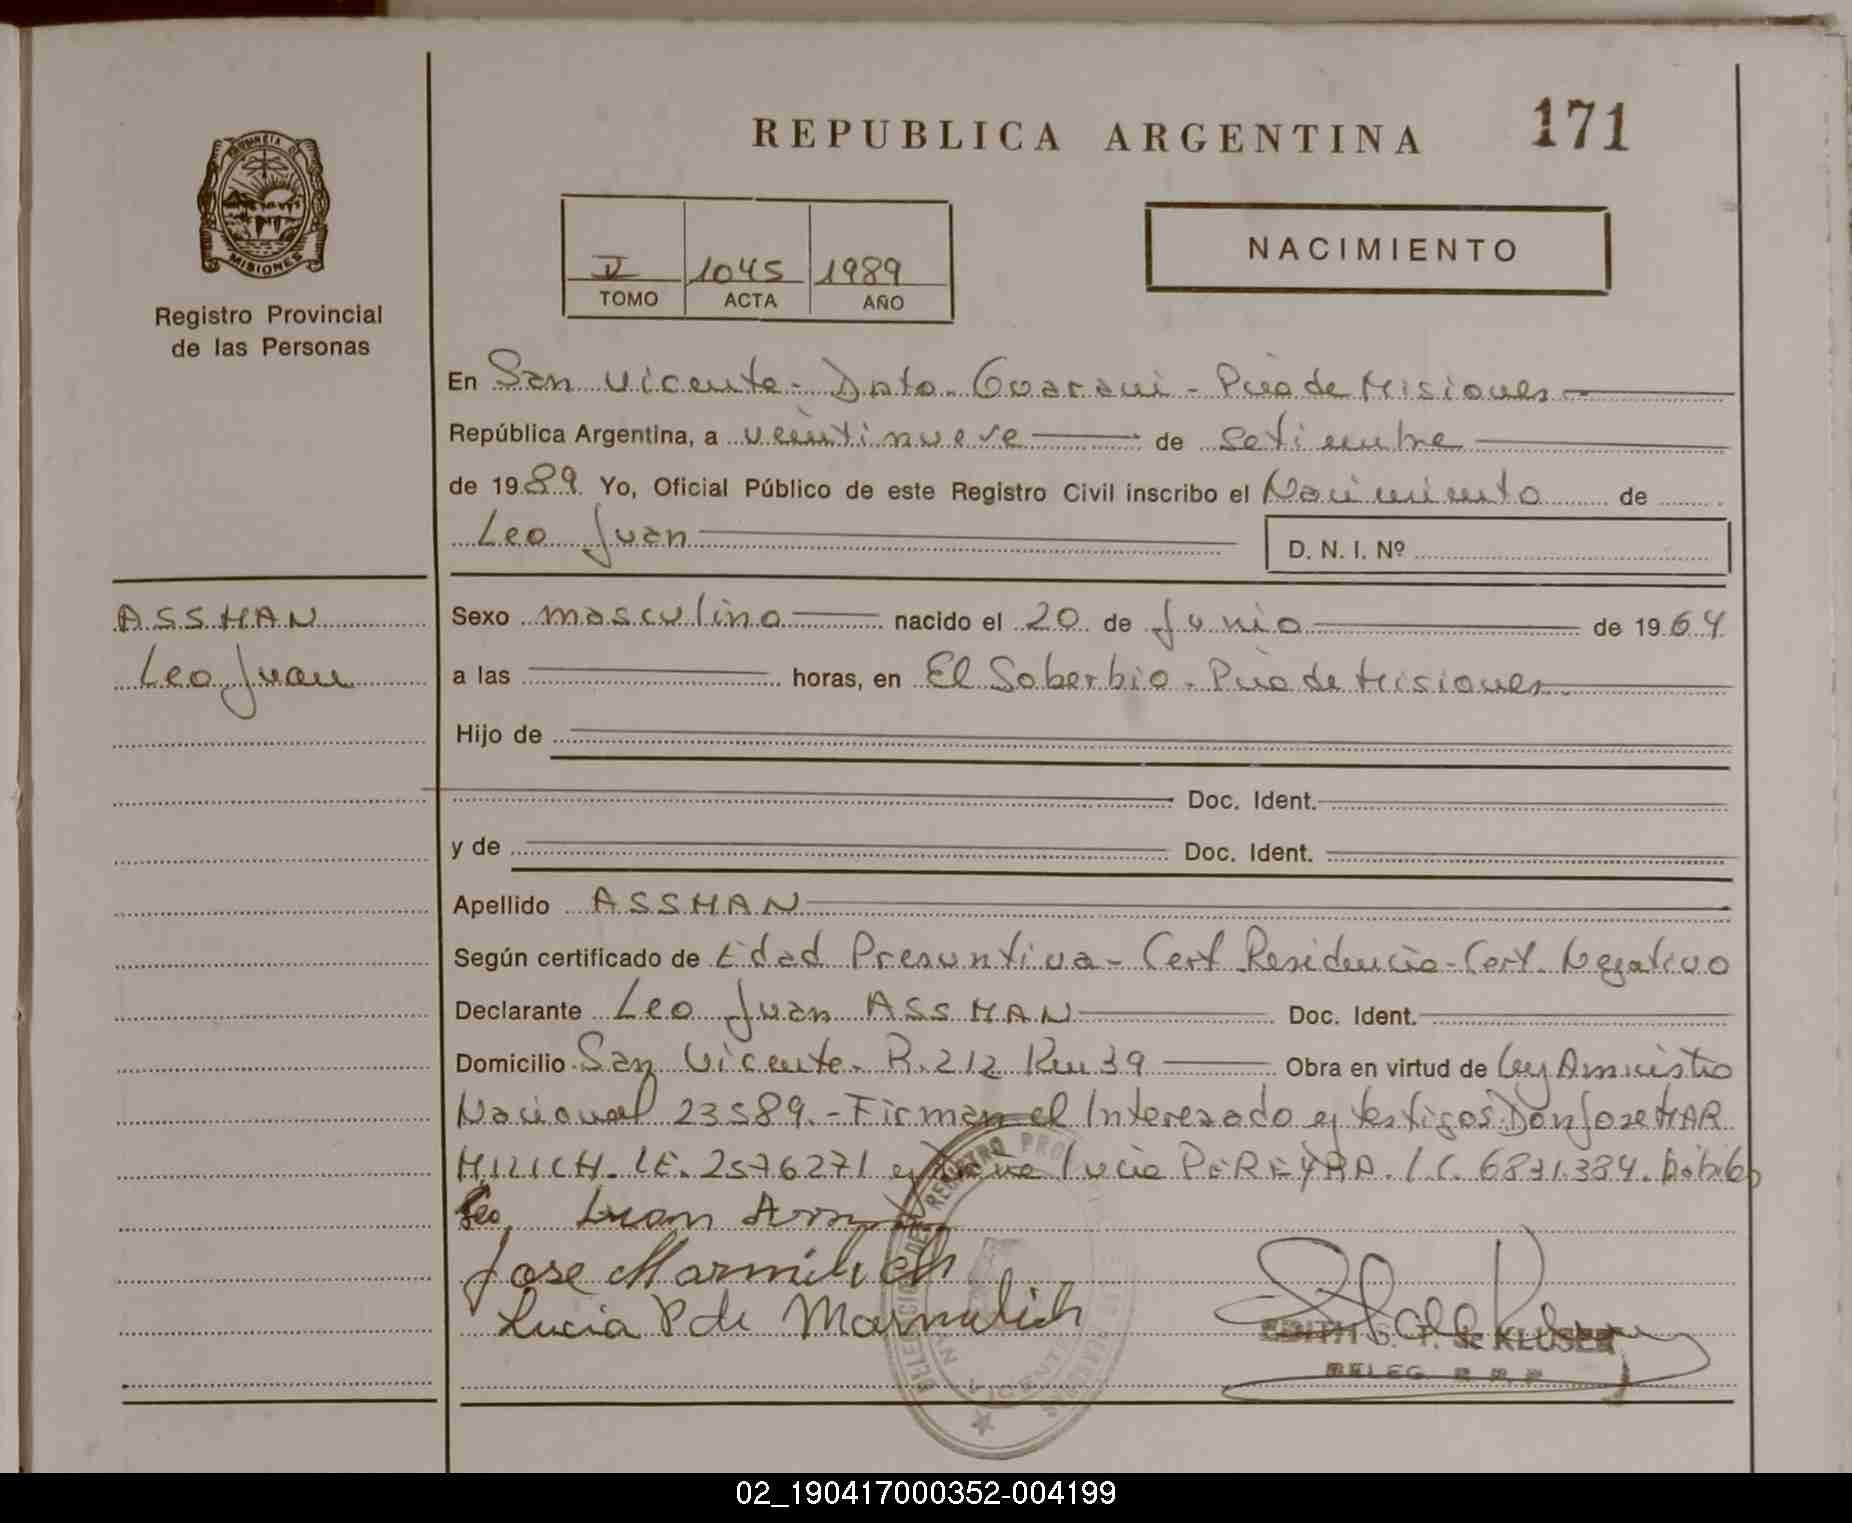 REPUBLICA ARGENTINA 171
PROVINCIA DE
MISIONES
Registro Provincial
de las Personas
V 1045 1989
TOMO ACTA AÑO
NACIMIENTO
En San Vicente - Dpto. Guarani - Pcia de Misiones
República Argentina, a veintinueve de setiembre
de 1989 Yo, Oficial Público de este Registro Civil inscribo el Nacimiento de
Leo Juan
D. N. I. Nº
ASSMAN
Leo Juan
Sexo masculino nacido el 20 de Junio de 1964
a las horas, en El Soberbio - Pcia de Misiones
Hijo de
Doc. Ident.
y de Doc. Ident.
Apellido ASSMAN
Según certificado de Edad Presuntiva - Cert Residencia - Cert. Negativo
Declarante Leo Juan ASSMAN Doc. Ident.
Domicilio San Vicente. R. 212 Km 39 Obra en virtud de Ley Amnistia
Nacional 23589.- Firman el Interesado y testigos Don Jose MAR
MILICH. LE. 2576271 y Lucia PEREYRA. L.C. 6831.334.
Leo Juan
Jose Marmilich
Lucia P de Marmilich
EDITH S. T. S. KLUSER
DELEG R R P
02_190417000352-004199